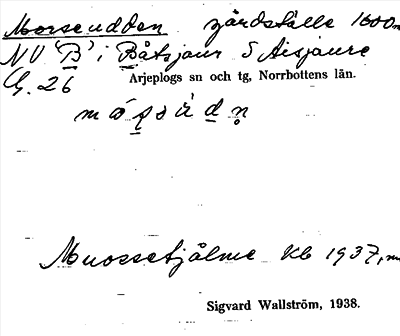 Morseudden gårdställe 1600m
NV 'B' i Båtsjaur S Aisjaure
G. 26 Arjeplogs sn och tg, Norrbottens län.
Muossetjålme Kb 1937, m
Sigvard Wallström, 1938.